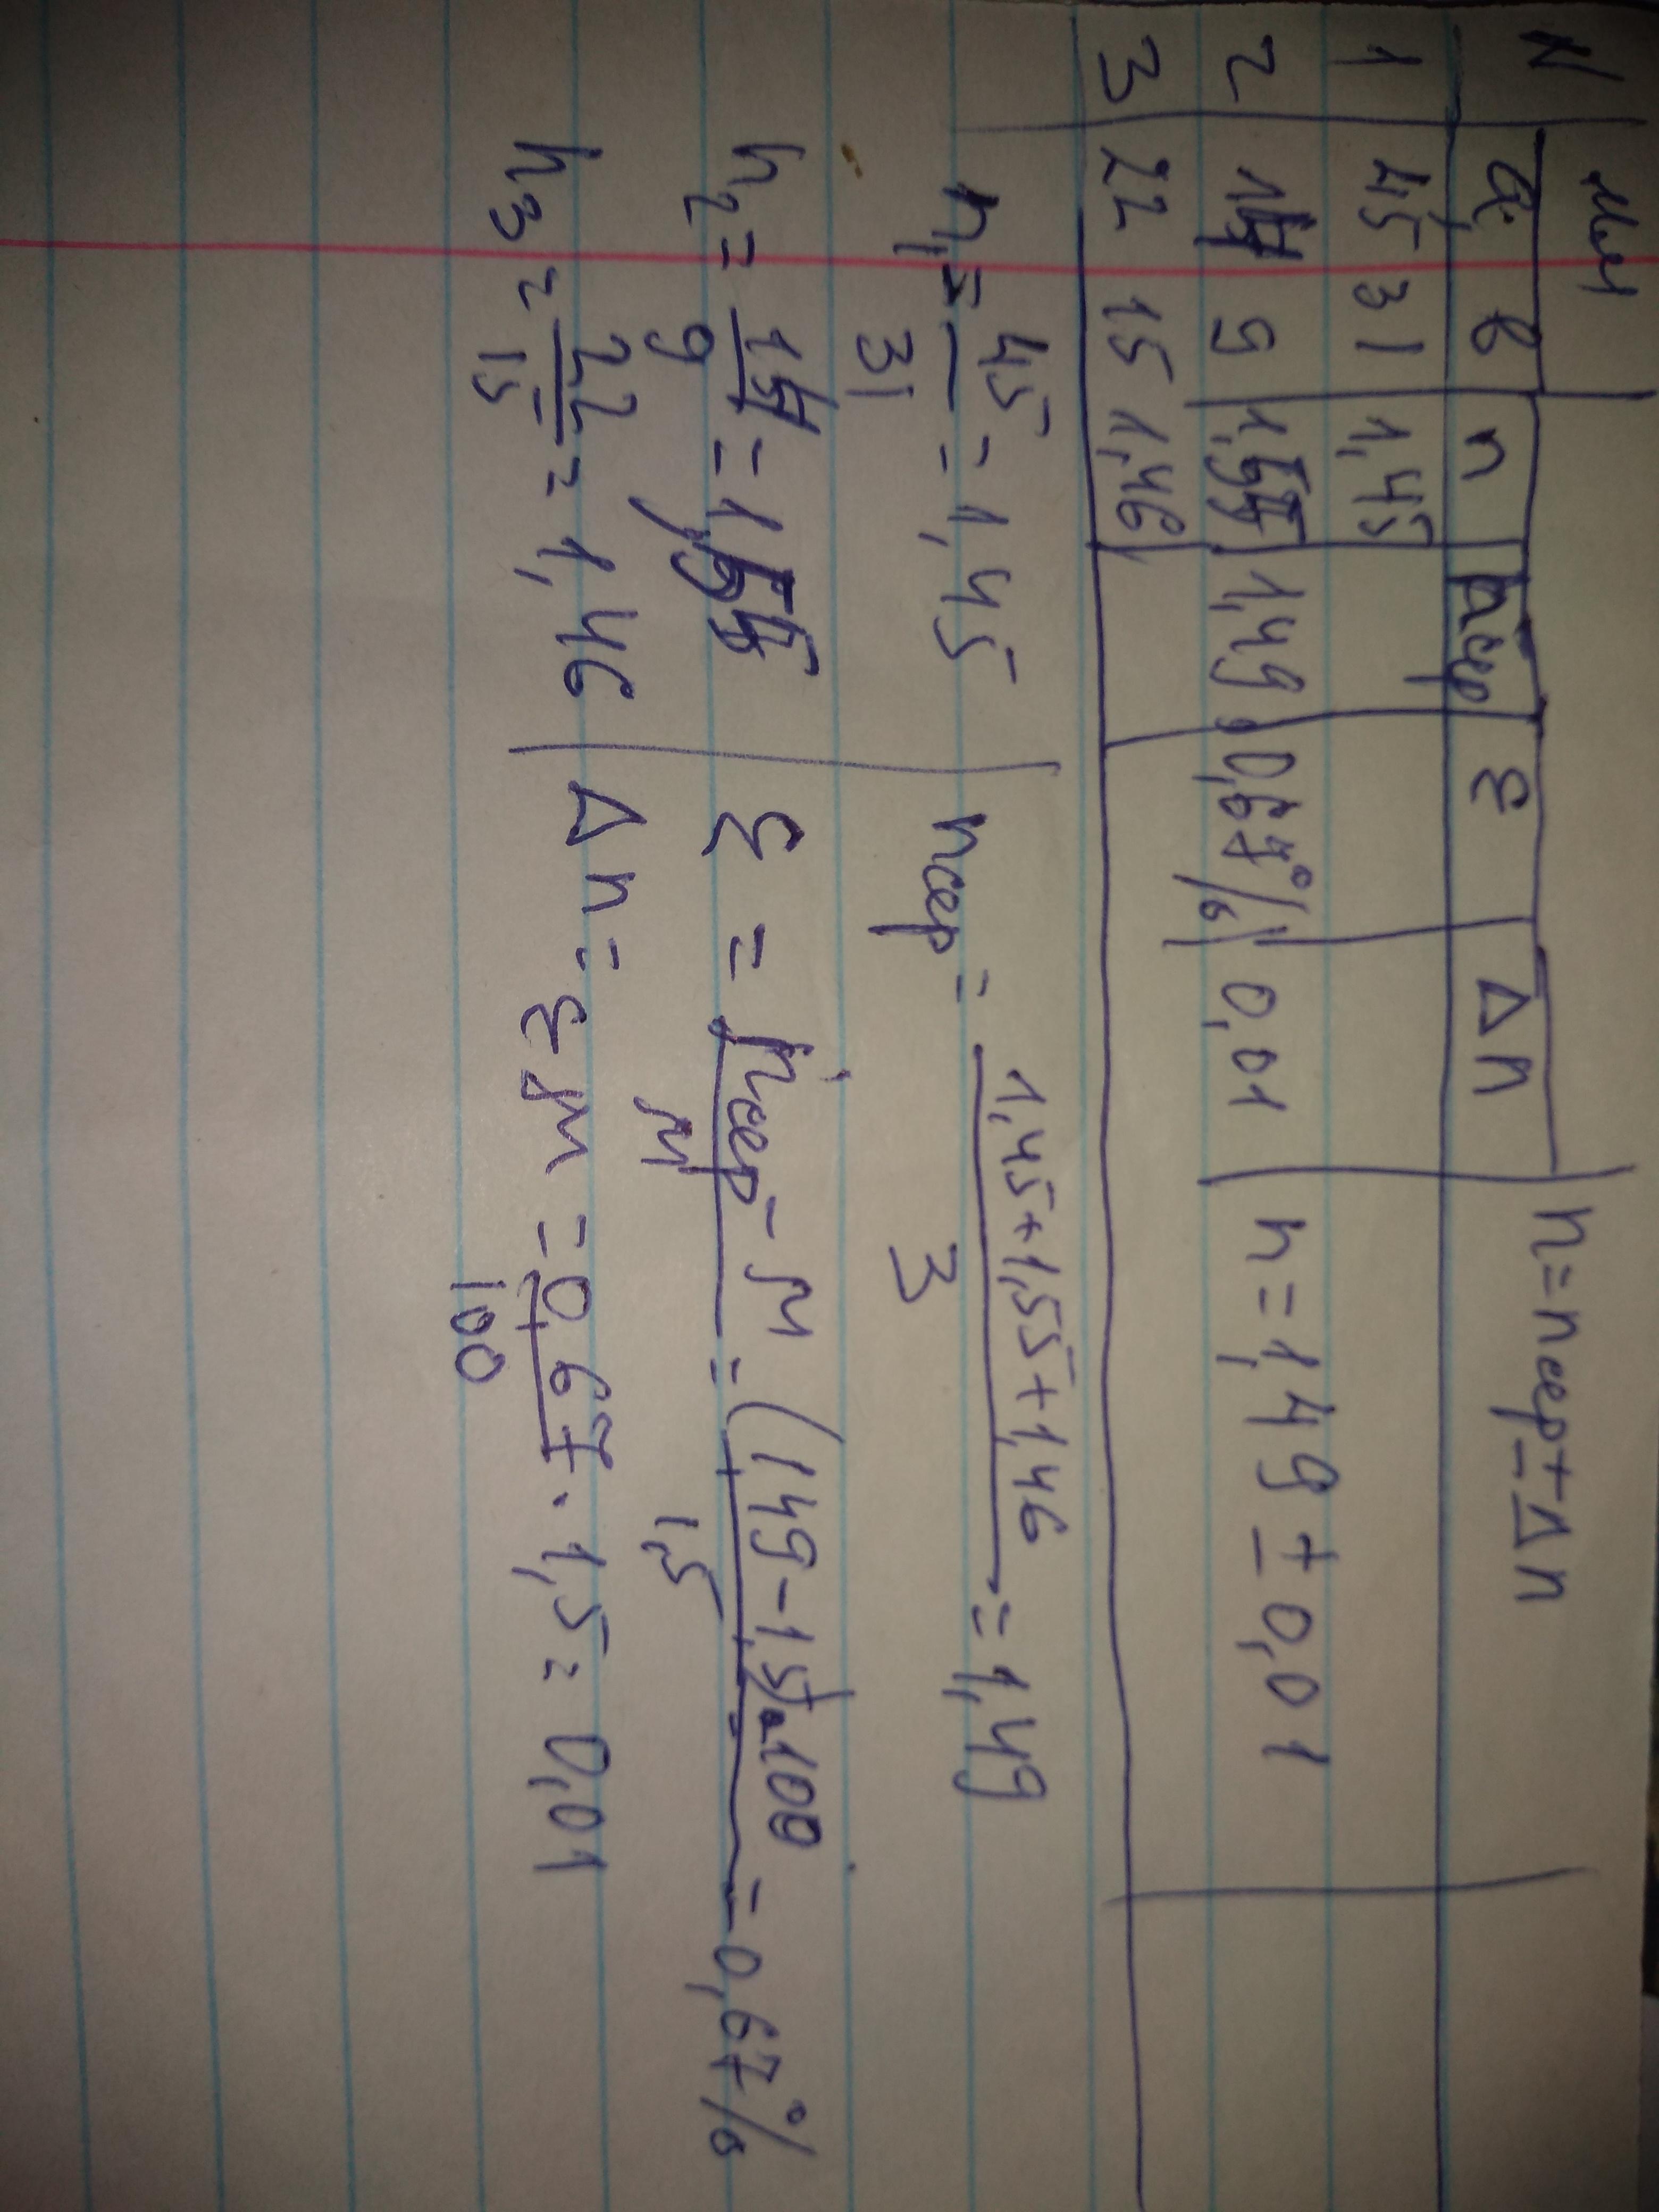 N мм n = nсер ± Δn
a b n nсер ε Δn
1 45 31 1,45
2 14 9 1,55 1,49 0,67% 0,01 n = 1,49 ± 0,01
3 22 15 1,46
n1 = 45/31 = 1,45 nсер = (1,45+1,55+1,46)/3 = 1,49
n2 = 14/9 = 1,55 ε = |nсер - n|/n = |1,49-1,5|·100/1,5 = 0,67%
n3 = 22/15 = 1,46 Δn = ε n = 0,67/100 · 1,5 = 0,01